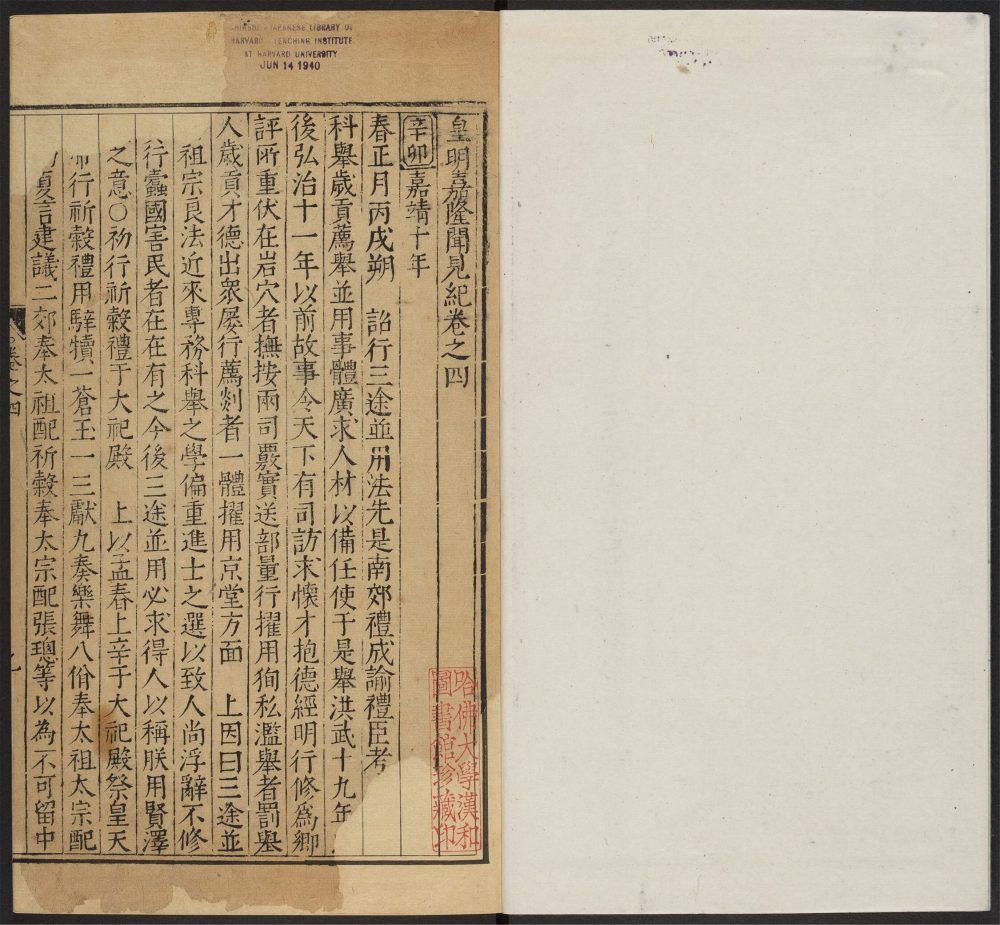 CHINESE-JAPANESE LIBRARY OF
HARVARD-YENCHING INSTITUTE
AT HARVARD UNIVERSITY
JUN 14 1940
皇明嘉隆聞見紀卷之四
辛卯嘉靖十年
春正月丙戌朔　詔行三途並用法先是南郊禮成諭禮臣考
科舉歲貢薦舉並用事體廣求人材以備任使于是舉洪武十九年
後弘治十一年以前故事令天下有司訪求懷才抱德經明行修爲鄉
評所重伏在岩穴者撫按兩司覈實送部量行擢用狥私濫舉者罰舉
人歲貢才德出衆屡行薦剡者一體擢用京堂方面　上因曰三途並
祖宗良法近來專務科舉之學偏重進士之選以致人尚浮辭不修
行蠹國害民者在在有之今後三途並用必求得人以稱朕用賢澤
之意○初行祈穀禮于大祀殿　上以孟春上辛于大祀殿祭皇天
行祈穀禮用騂犢一蒼玉一三獻九奏樂舞八佾奉太祖太宗配
夏言建議二郊奉太祖配祈穀奉太宗配張璁等以為不可留中
卷之四
哈佛大學漢和
圖書館珍藏印